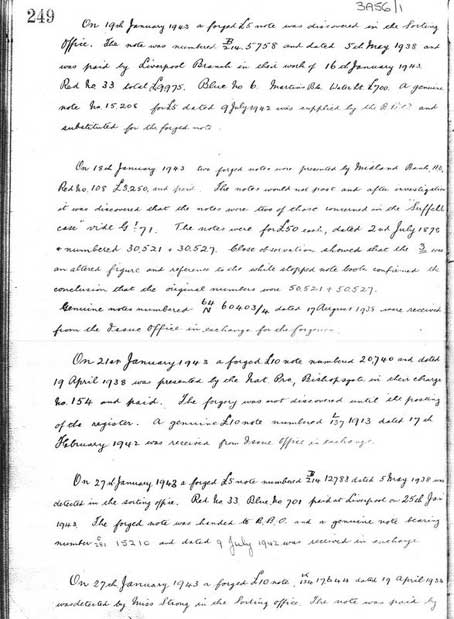 249
3A56/1
On 19th January 1943 a forged £5 note was discovered in the Sorting
Office. The note was numbered B/214 5758 and dated 5th May 1938 and
was paid by Liverpool Branch in their work of 16th January 1943.
Red No 33 total £3975. Blue No 6. Martins Bk. £700. A genuine
note No. 15,208 for £5 dated 9 July 1942 was supplied by the and
substituted for the forged note.
On 18th January 1943 two forged notes were presented by Midland Bank,
Red No. 108 £3,250, and paid. The notes would not post and after investigation
it was discovered that the notes were two of those concerned in the "Suffell
case" vide 71. The notes were for £50 each, dated 2nd July 1879
+ numbered 30,521 + 30,527. Close observation showed that the 3 was
an altered figure and reference to the white stopped note book confirmed the
conclusion that the original numbers were 50,521 + 50,527.
Genuine notes numbered 64/N 60403/4 dated 17 August 1938 were received
from the Issue Office in exchange for the forgeries.
On 21st January 1943 a forged £10 note numbered 20,740 and dated
19 April 1938 was presented by the Nat. Pro, Bishopsgate in their charge
No. 154 and paid. The forgery was not discovered until the posting
of the register. A genuine £10 note numbered L/137 1913 dated 17th
February 1942 was received from Issue Office in exchange.
On 27th January 1943 a forged £5 note numbered B/214 12783 dated 5 May 1938 was
detected in the sorting office. Red No. 33 Blue No 701 paid at Liverpool on 25th Jan
1943. The forged note was handed to and a genuine note bearing
number 15210 and dated 9 July 1942 was received in exchange
On 27th January 1943 a forged £10 note 17644 dated 19 April
was detected by Miss Strong in the Sorting office. The note was paid by